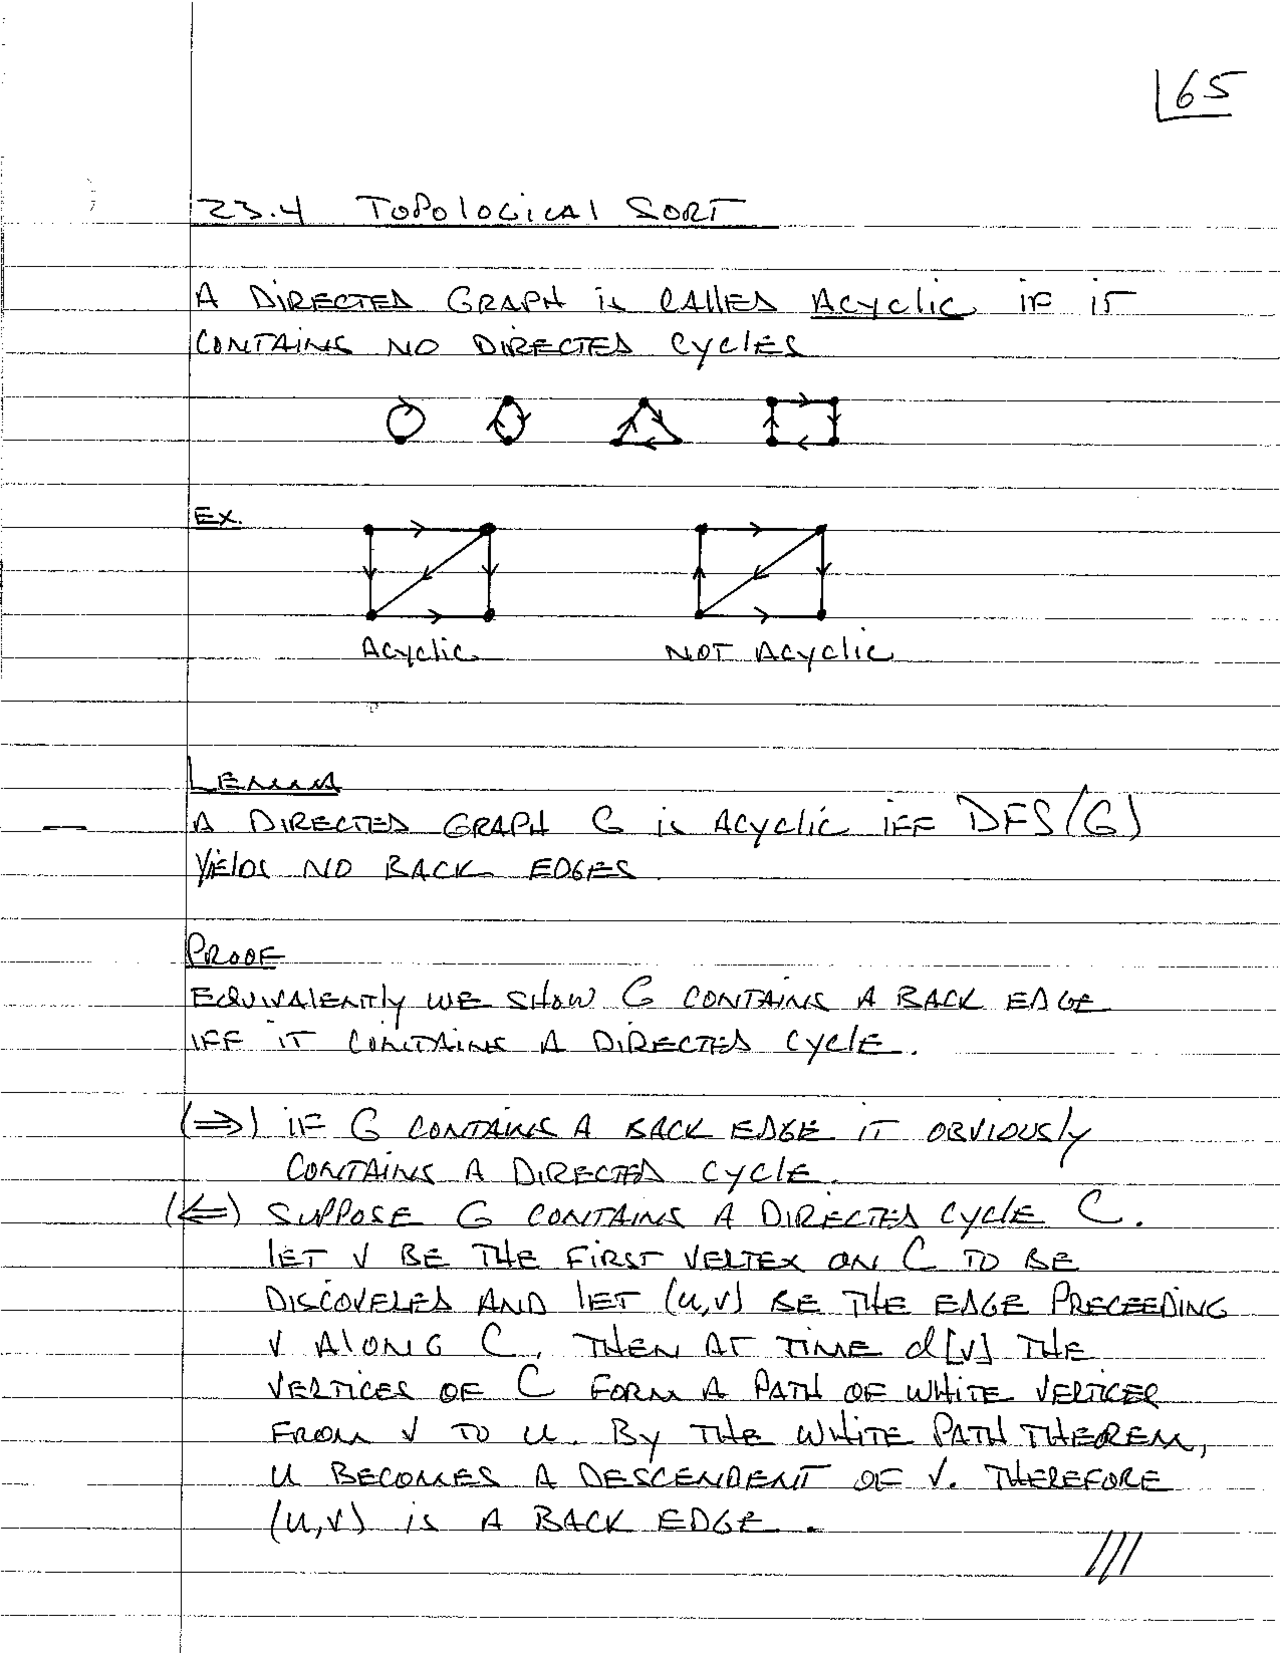 65
23.4 TOPOLOGICAL SORT
A DIRECTED GRAPH is CALLED ACYCLIC IF IT
CONTAINS NO DIRECTED CYCLES
EX.
ACYCLIC
NOT ACYCLIC
LEMMA
A DIRECTED GRAPH G is ACYCLIC IFF DFS(G)
YIELDS NO BACK EDGES.
PROOF
EQUIVALENTLY WE SHOW G CONTAINS A BACK EDGE
IFF IT CONTAINS A DIRECTED CYCLE.
(⇒) IF G CONTAINS A BACK EDGE IT OBVIOUSLY
CONTAINS A DIRECTED CYCLE.
(⇐) SUPPOSE G CONTAINS A DIRECTED CYCLE C.
LET V BE THE FIRST VERTEX ON C TO BE
DISCOVERED AND LET (u,v) BE THE EDGE PRECEEDING
V ALONG C. THEN AT TIME d[v] THE
VERTICES OF C FORM A PATH OF WHITE VERTICES
FROM V TO U. BY THE WHITE PATH THEOREM,
U BECOMES A DESCENDENT OF V. THEREFORE
(u,v) is A BACK EDGE.
///